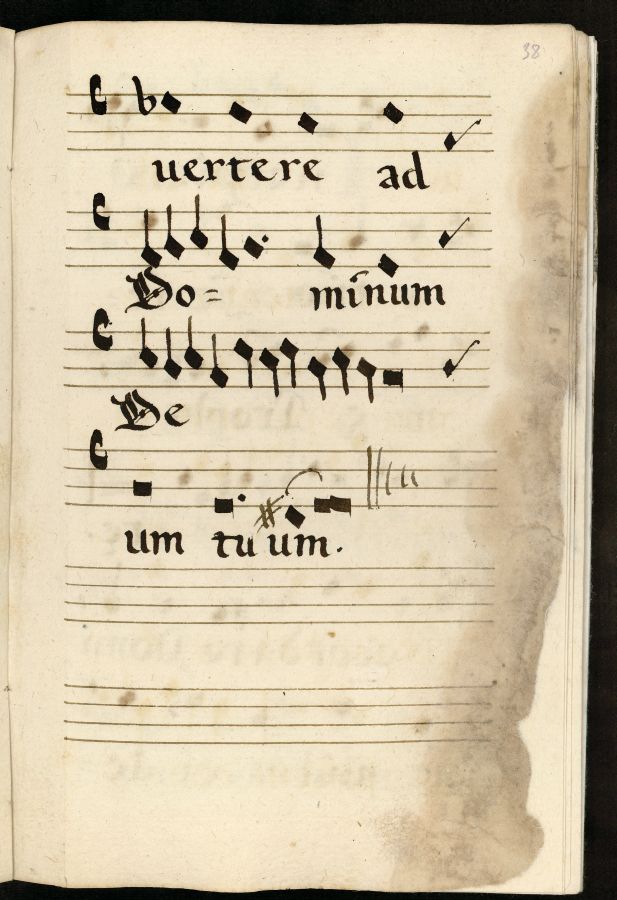 38
uertere ad
Do= minum
De
um tuum.